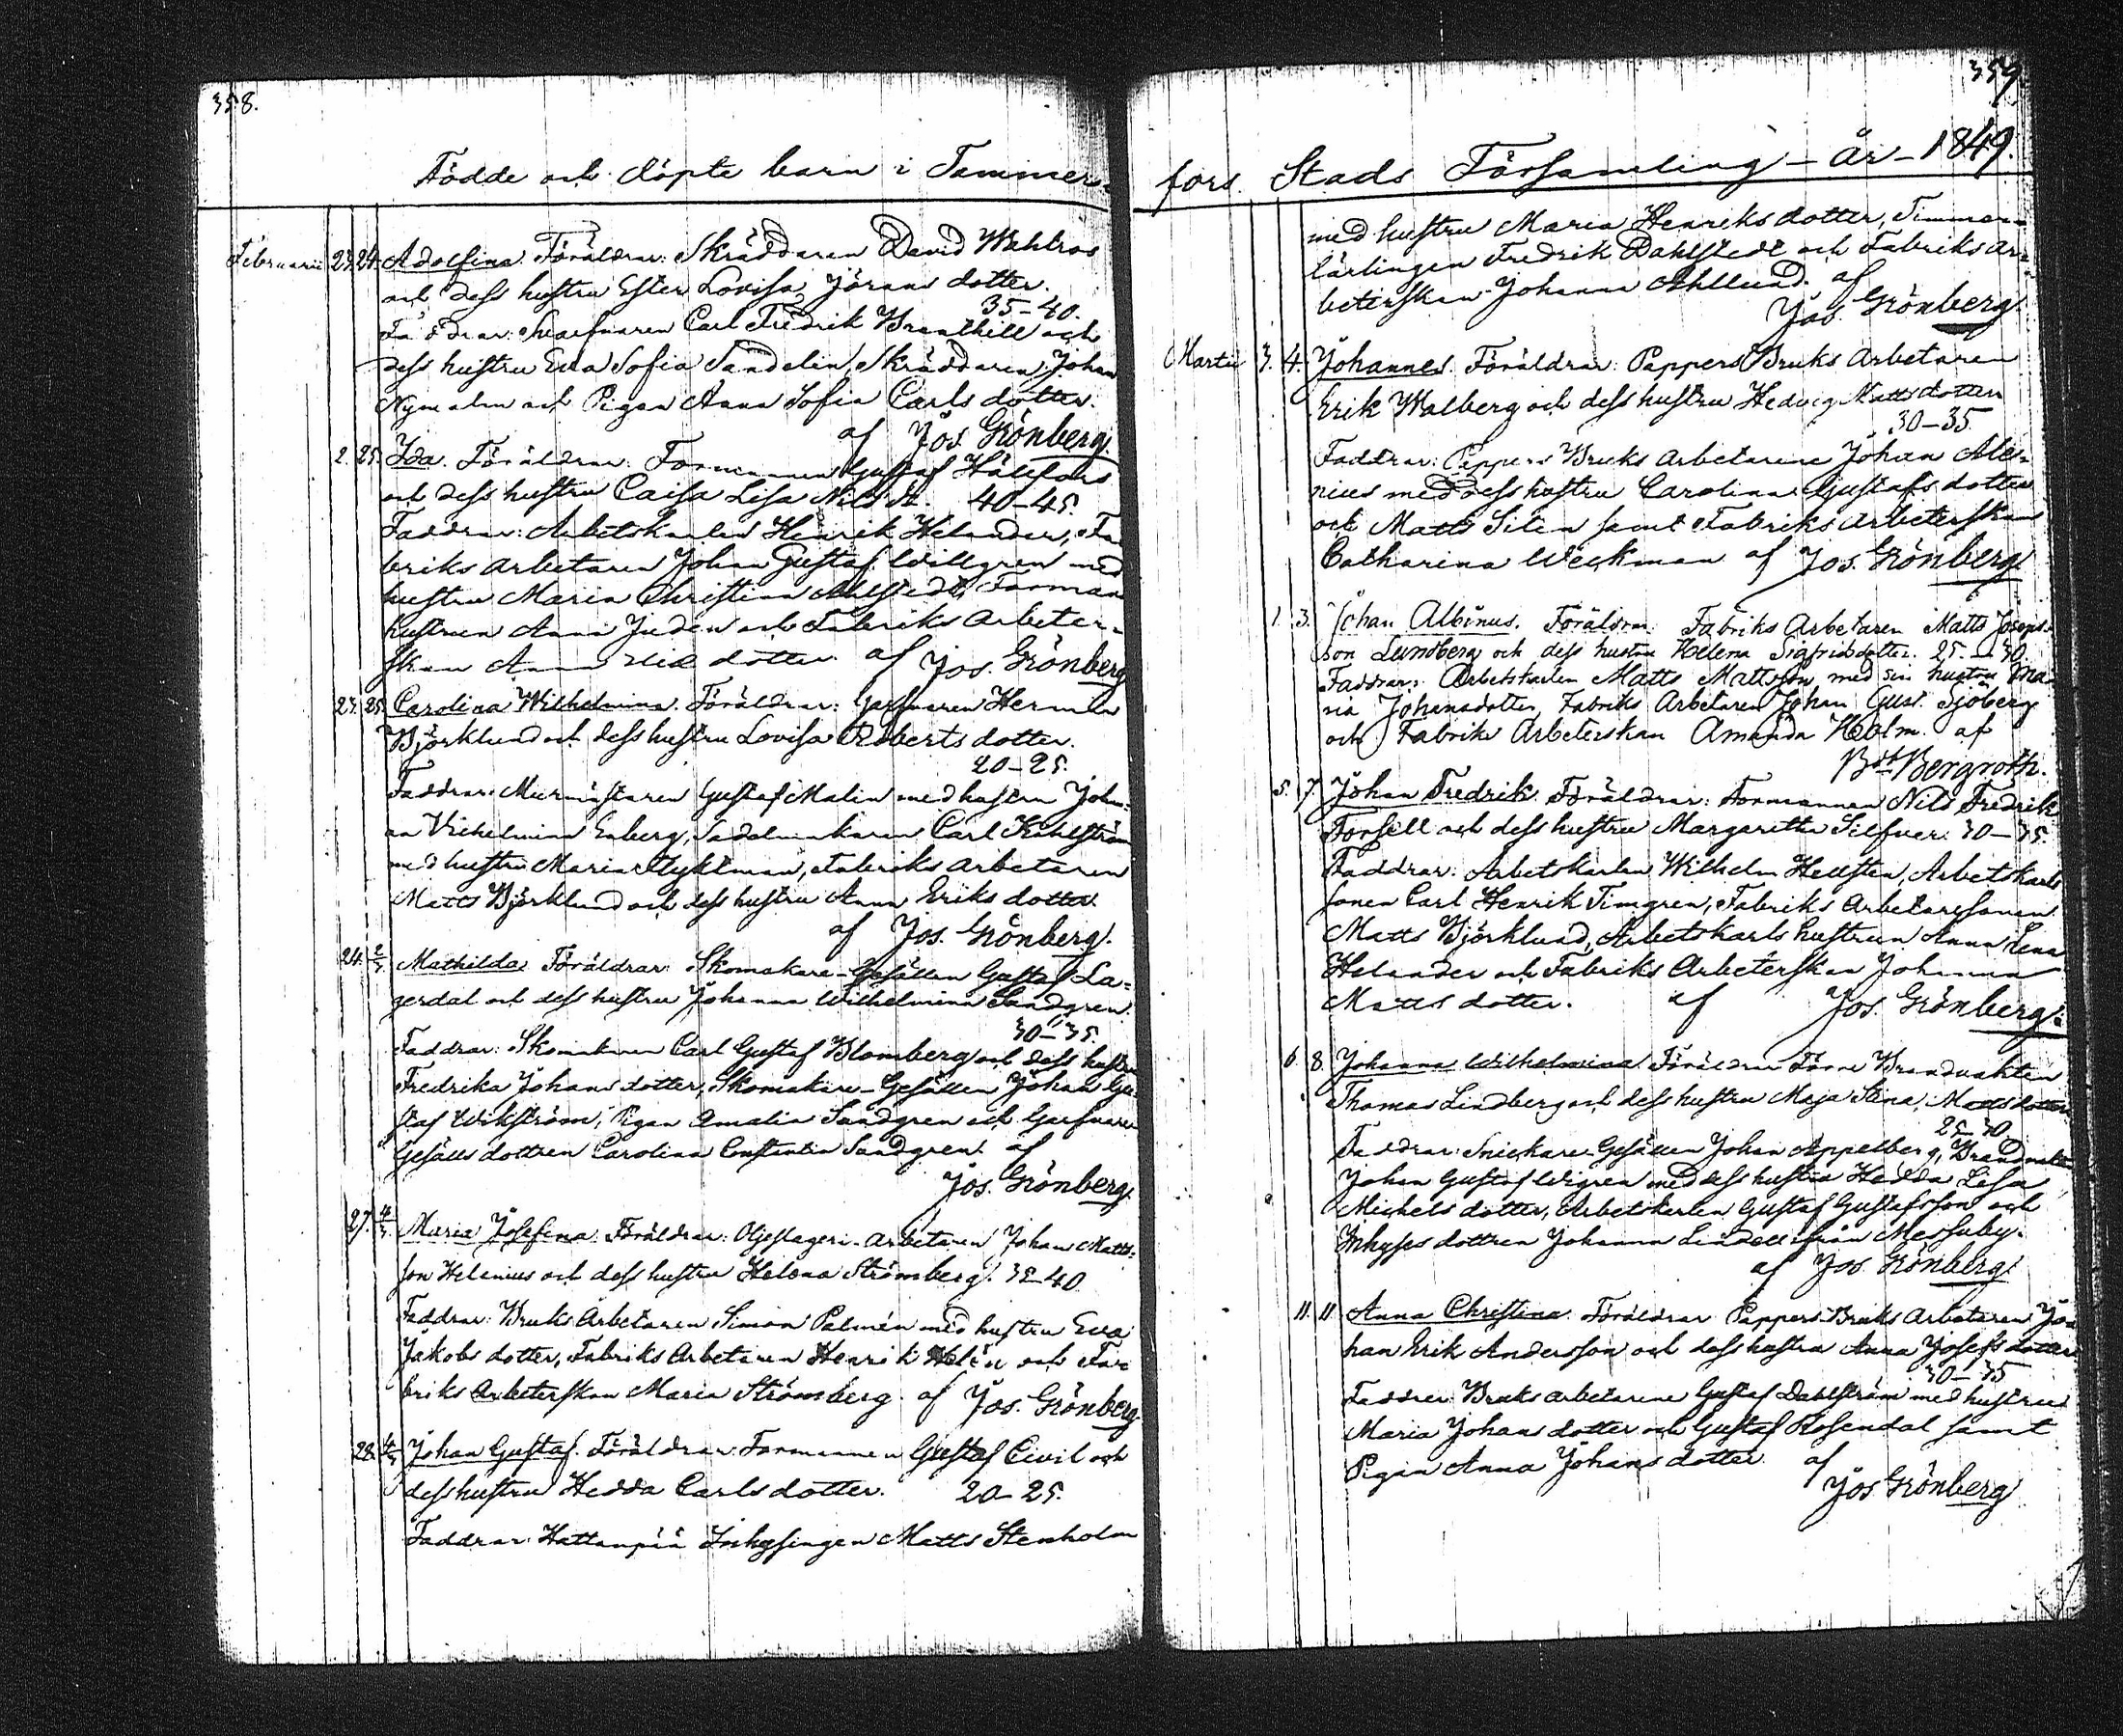 358.
Födde och döpte barn i Tammer-
Februarii 23. 24. Adolfina. Föräldrar: Skräddaren David Wahlros
och dess hustru Ester Lovisa Jörans dotter.
35-40.
Faddrar: Garfvaren Carl Fredrik Branthill och
dess hustru Eva Sofia Sandelin, Skräddaren Johan
Nymalm och Pigan Anna Sofia Carls dotter.
af Jos. Grönberg.
2. 25. Ida. Föräldrar: Formannen Gustaf Hällfors
och dess hustru Caisa Lisa Nils dr. 40-45.
Faddrar: Arbetskarlen Henrik Helander, Fa
briks arbetaren Johan Gustaf Willgren med
hustru Maria Christina Ahlstedt, Formans
hustrun Anna Juden och Fabriks arbeter-
skan Anna dotter. af Jos. Grönberg
23. 25. Carolina Wilhelmina. Föräldrar: Garfvaren Herman
Björklund och dess hustru Lovisa Roberts dotter.
20-25.
Faddrar: Murmästaren Gustaf Malin med hustru Joha-
na Vilhelmina Enberg, Sadelmakaren Carl Kihlström
med hustru Maria Flyktman, Fabriks arbetaren
Matts Björklund och dess hustru Anna Eriks dotter
af Jos. Grönberg.
24. 2/3 Mathilda. Föräldrar: Skomakare-Gesällen Gustaf La-
gerdal och dess hustru Johanna Wilhelmina Sandgren.
30-35.
Faddrar: Skomakaren Carl Gustaf Blomberg och dess hustru
Fredrika Johans dotter, Skomakare-Gesällen Johan Gu-
staf Wikström, Pigan Amalia Sandgren och Garfvare
Gesälls dottren Carolina Constantia Sandgren. af
Jos. Grönberg.
27. 4/3 Maria Josefina. Föräldrar: Oljeslageri-arbetaren Johan Matts-
son Helenius och dess hustru Helena Strömberg. 35-40
Faddrar: Bruks Arbetaren Simon Palmén med hustru Eva
Jakobs dotter, Fabriks Arbetaren Henrik Helén och Fa-
briks Arbeterskan Maria Strömberg. af Jos. Grönberg
28. 4/3 Johan Gustaf. Föräldrar: Formannen Gustaf Civil och
dess hustru Hedda Carls dotter. 20-25.
Faddrar: Hattanpää Inhysingen Matts Stenholm
359.
fors Stads Församling - år - 1849.
med hustru Maria Henriks dotter, Timmer-
lärlingen Fredrik Dahlstedt och Fabriks ar-
beterskan Johanna Ahllund. af
Jos. Grönberg.
Martii 3. 4. Johannes. Föräldrar: Pappers Bruks Arbetaren
Erik Walberg och dess hustru Hedvig Matts dotter
30-35
Faddrar: Pappers Bruks arbetarene Johan Ale-
nius med dess hustru Carolina Gustafs dotter
och Matts Siten samt Fabriks arbeterskan
Catharina Weckman af Jos. Grönberg
1. 3. Johan Albinus. Föräldrar: Fabriks Arbetaren Matts Joseps-
son Lundberg och dess hustru Helena Sigfridsdotter. 25-30
Faddrar: Arbetskarlen Matts Mattsson med sin hustru Ma-
ria Johansdotter, Fabriks Arbetaren Johan Gust. Sjöberg
och Fabriks Arbeterskan Amanda Holm. af
Bergroth.
5. 7. Johan Fredrik. Föräldrar: Formannen Nils Fredrik
Forsell och dess hustru Margaretha Silfver. 30-35.
Faddrar: Arbetskarlen Wilhelm Hellsten, Arbetskarls
sonen Carl Henrik Timgren, Fabriks Arbetaresonen
Matts Björklund, Arbetskarls hustrun Anna Lena
Helander och Fabriks Arbeterskan Johanna
Matts dotter. af Jos. Grönberg.
6. 8. Johanna Wilhelmina Föräldrar Förre Brandvakten
Thomas Lindberg och dess hustru Maja Stina Matts dotter
25-30
Faddrar: Snickare-Gesällen Johan Appelberg, Brandvakten
Johan Gustaf Wigren med dess hustru Hedda Lisa
Michels dotter, Arbetskarlen Gustaf Gustafsson och
Inhyses dottren Johanna Lindell från Messuby.
af Jos. Grönberg.
11. 11 Anna Christina. Föräldrar Pappers-Bruks arbetaren Jo-
han Erik Andersson och dess hustru Anna Josefs dotter
30-35
Faddrar: Bruks arbetarene Gustaf Dahlström med hustru
Maria Johans dotter och Gustaf Rosendal samt
Pigan Anna Johans dotter. af
Jos Grönberg